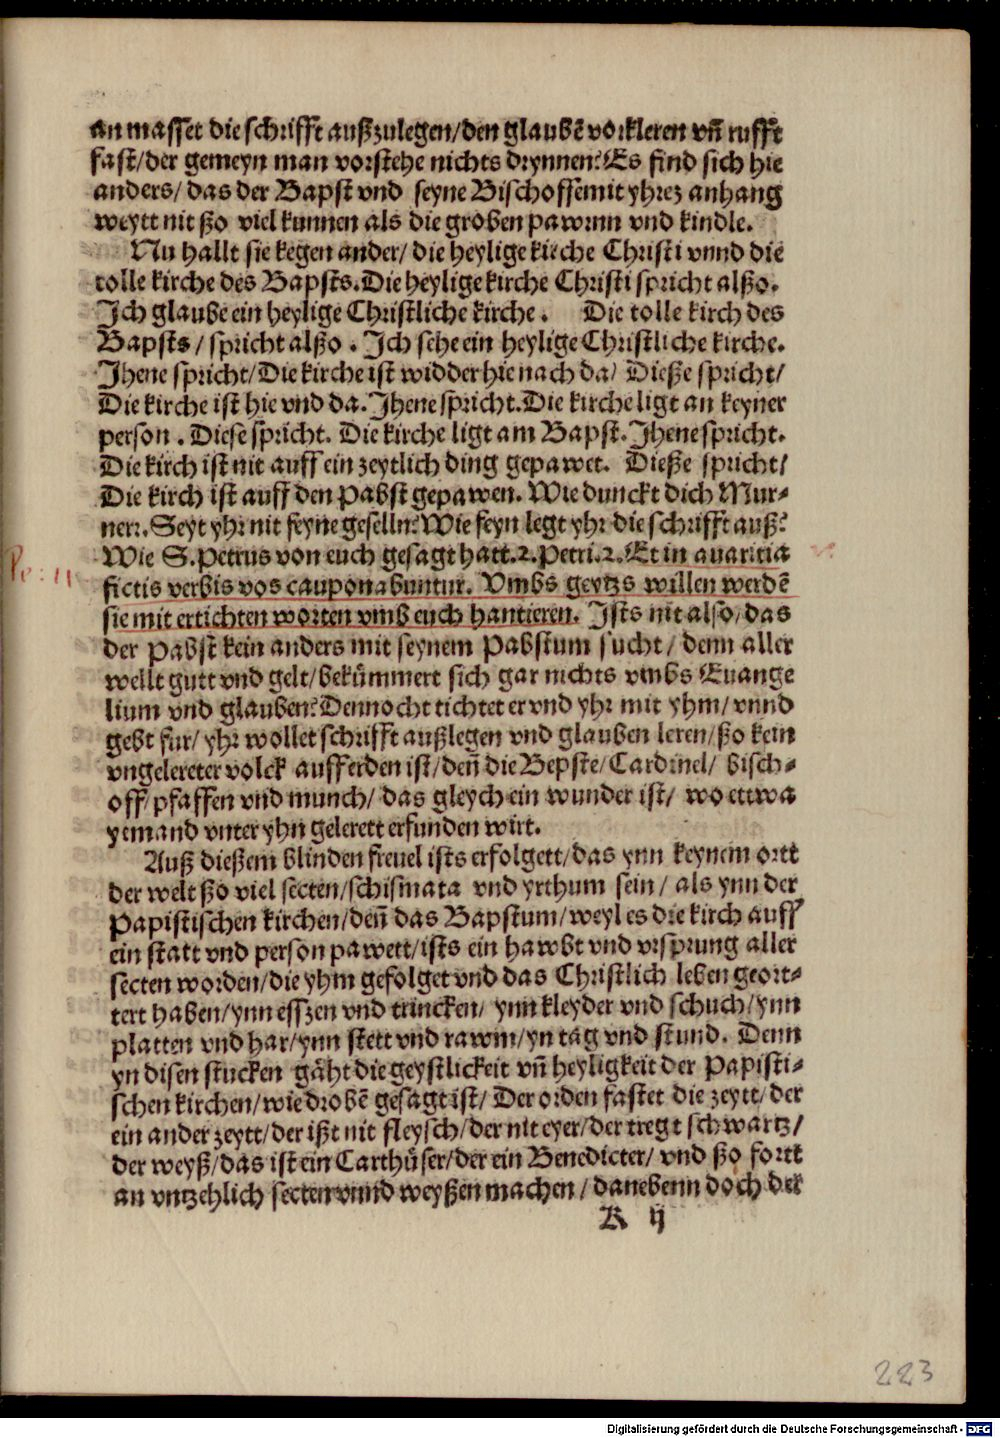 an masset die schrifft außzulegen/den glaubē vorkleren vñ rufft
fast/der gemeyn man vorstehe nichts drynnen? Es find sich hie
anders/ das der Bapst vnd seyne Bischoffe mit yhrez anhang
weytt nit ßo viel kunnen als die groben pawrnn vnd kindle.
Nu hallt sie kegen ander/ die heylige kirche Christi vnnd die
tolle kirche des Bapsts. Die heylige kirche Christi spricht alßo.
Ich glaube ein heylige Christliche kirche. Die tolle kirch des
Bapsts/ spricht alßo. Ich sehe ein heylige Christliche kirche.
Ihene spricht/ Die kirche ist widder hie nach da/ Dieße spricht/
Die kirche ist hie vnd da. Ihene spricht. Die kirche ligt an keyner
person. Diese spricht. Die kirche ligt am Bapst. Ihene spricht.
Die kirch ist nit auff ein zeytlich ding gepawet. Dieße spricht/
Die kirch ist auff den Pabst gepawen. Wie dunckt dich Mur-
nerr. Seyt yhr nit feyne geselln? Wie feyn legt yhr die schrifft auß?
Wie S. Petrus von euch gesagt hatt. 2. Petri. 2. Et in auaritia
fictis verbis vos cauponabuntur. Vmbs geytzs willen werdē
sie mit ertichten worten vmb euch hantieren. Ists nit also/ das
der Pabst kein anders mit seynem Pabstum sucht/ denn aller
wellt gutt vnd gelt/ bekůmmert sich gar nichts vmbs Euange
lium vnd glauben? Dennocht tichtet er vnd yhr mit yhm/ vnnd
gebt fur/ yhr wollet schrifft außlegen vnd glauben leren/ ßo kein
vngelereter volck auff erden ist/ deñ die Bepste/ Cardinel/ bisch-
off/ pfaffen vnd munch/ das gleych ein wunder ist/ wo ettwa
yemand vnter yhn gelerett erfunden wirt.
Auß dießem blinden freuel ists erfolgett/ das ynn keynem ortt
der welt ßo viel secten/ schismata vnd yrthum sein/ als ynn der
Papistischen kirchen/ deñ das Bapstum/ weyl es die kirch auff
ein statt vnd person pawett/ ists ein hawbt vnd vrsprung aller
secten worden/ die yhm gefolget vnd das Christlich leben geort-
tert haben/ ynn esszen vnd trincken/ ynn kleyder vnd schuch/ ynn
platten vnd har/ ynn stett vnd rawm/ yn tag vnd stund. Denn
yn disen stucken gäht die geystlickeit vñ heyligkeit der Papisti-
schen kirchen/ wie drobē gesagt ist/ Der orden fastet die zeytt/ der
ein ander zeytt/ der ißt nit fleysch/ der nit eyer/ der tregt schwartz/
der weyß/ das ist ein Carthůser/ der ein Benedicter/ vnd ßo fortt
an vntzehlich secten vnnd weyßen machen/ danebenn doch der
K ij
223
Digitalisierung gefördert durch die Deutsche Forschungsgemeinschaft - DFG